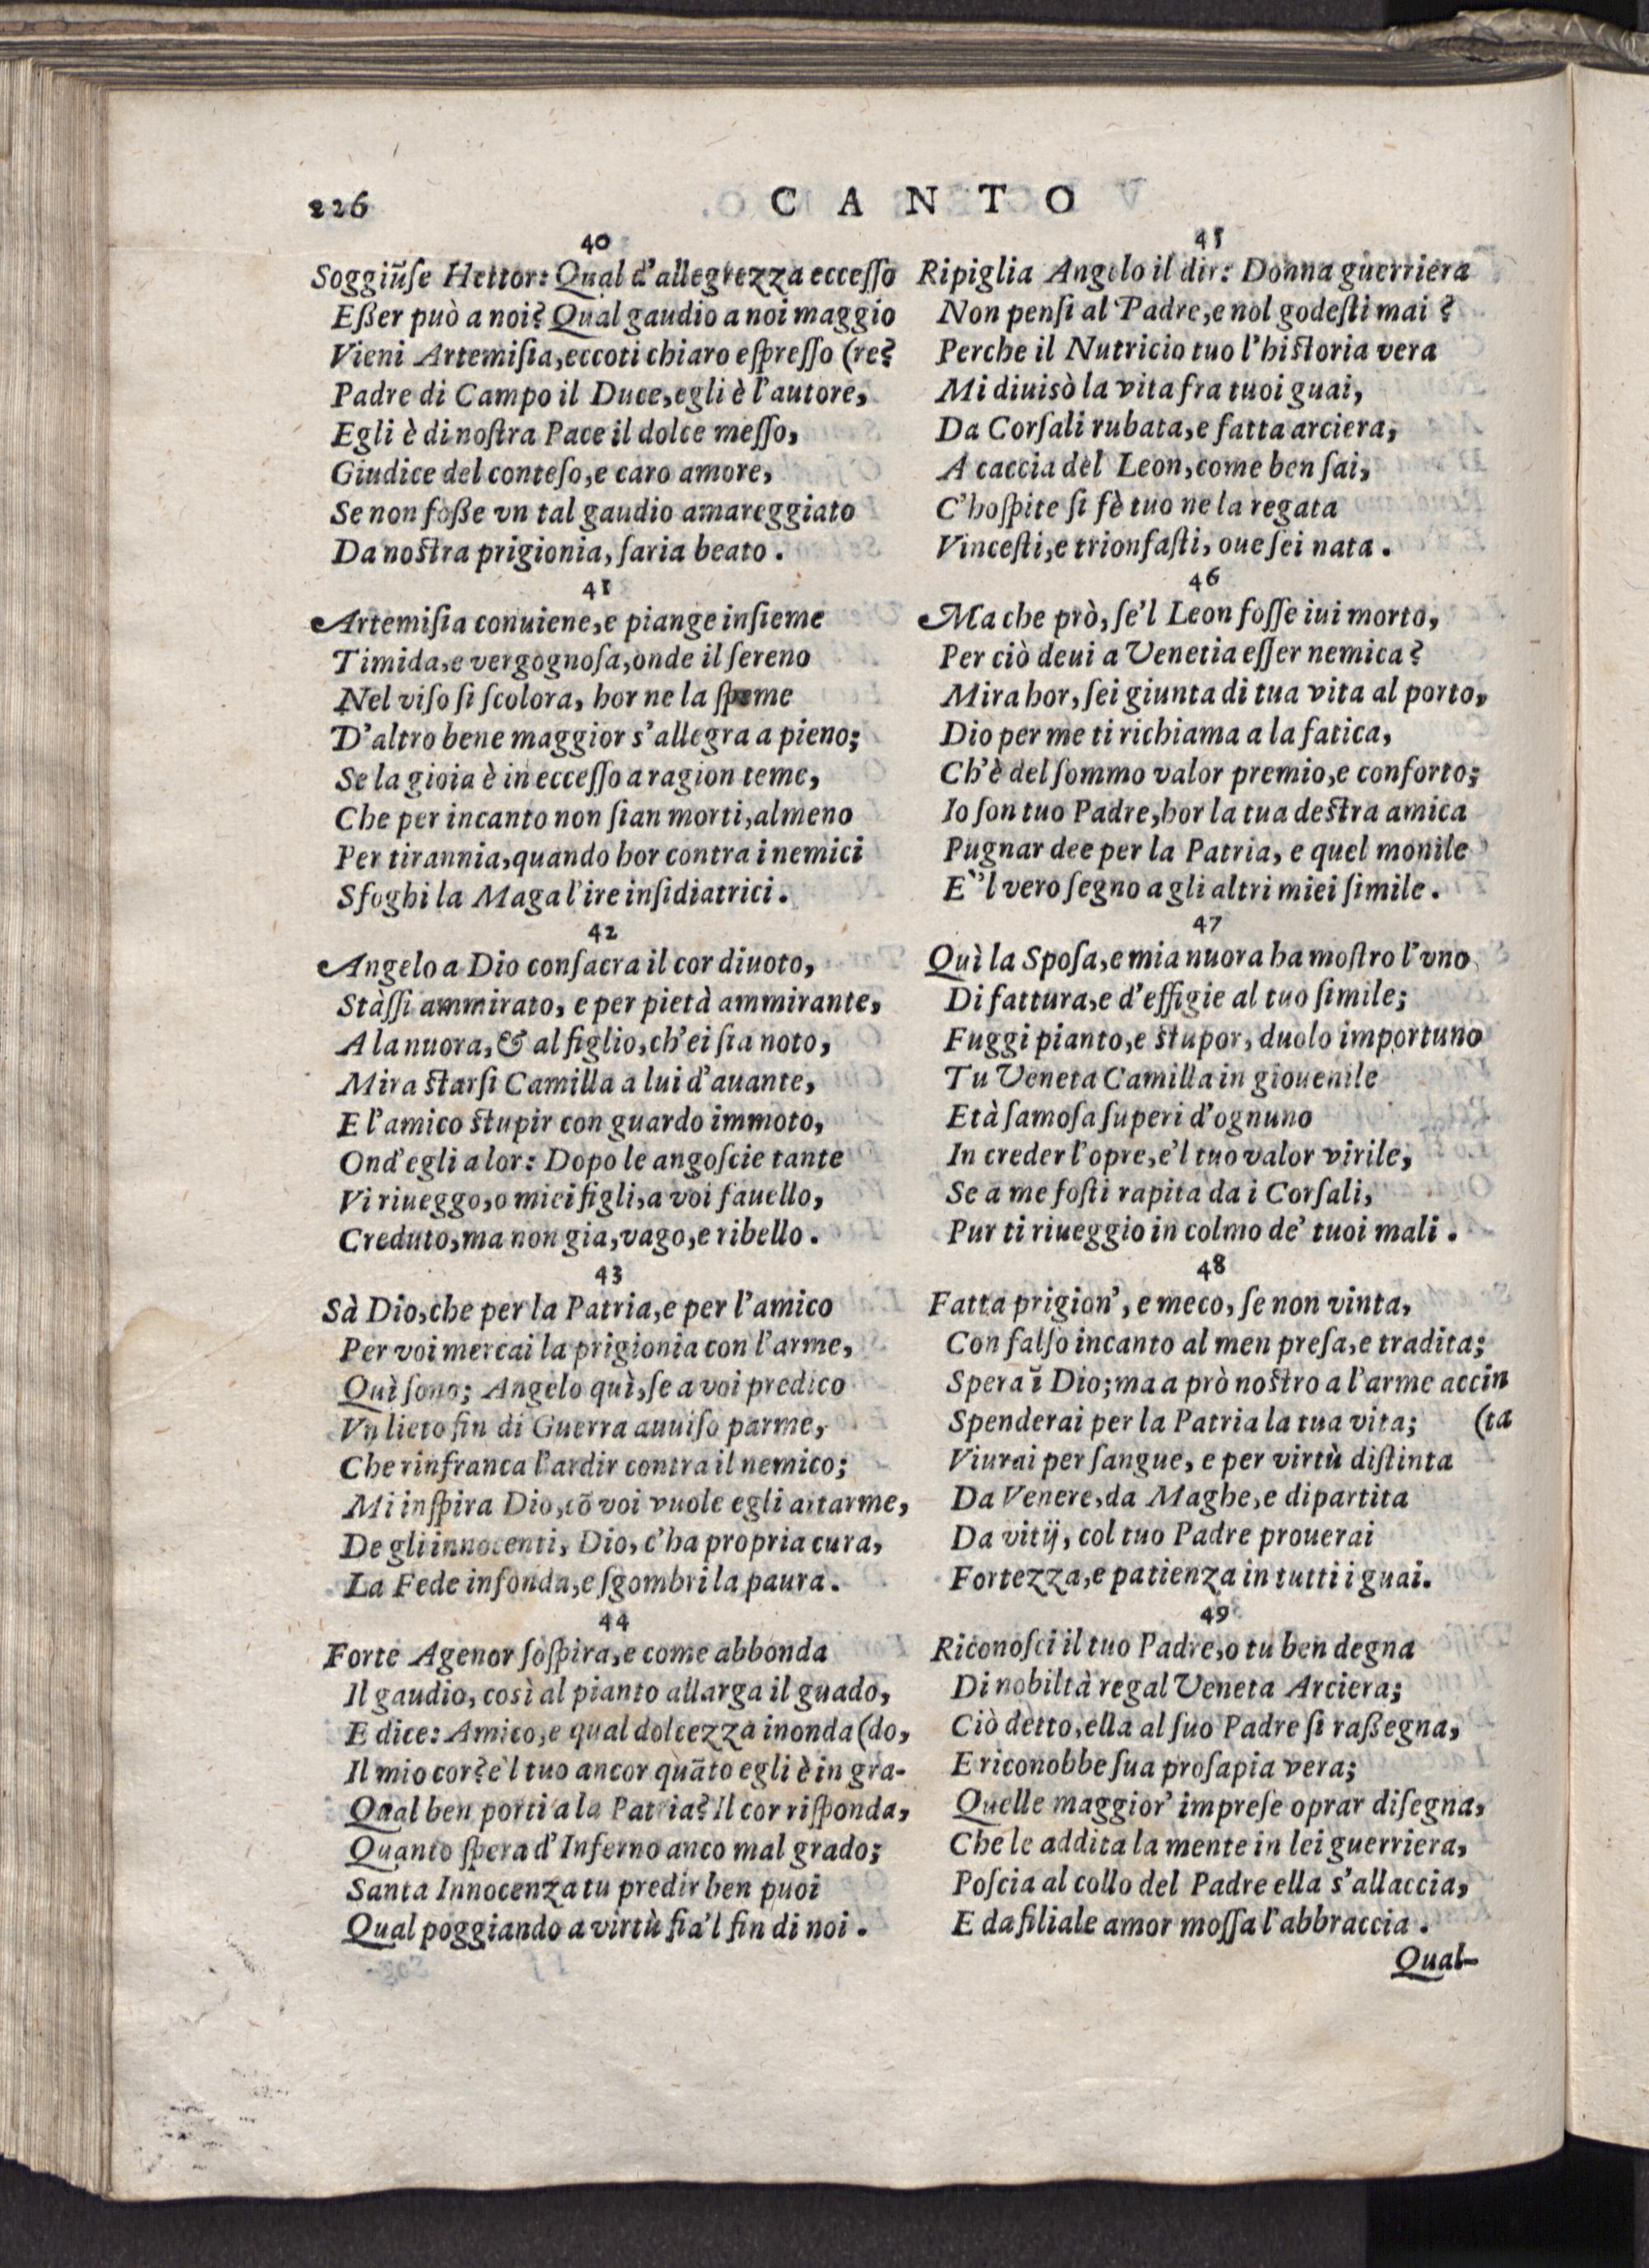 226 CANTO
40
Soggiũſe Hettor: Qual d'allegrezza ecceſſo
Eßer può a noi? Qual gaudio a noi maggio
Vieni Artemiſia, eccoti chiaro eſpreſſo (re?
Padre di Campo il Duce, egli è l'autore,
Egli è di noſtra Pace il dolce meſſo,
Giudice del conteſo, e caro amore,
Se non foße vn tal gaudio amareggiato
Da noſtra prigionia, ſaria beato.
41
Artemiſia conuiene, e piange inſieme
Timida, e vergognoſa, onde il ſereno
Nel viſo ſi ſcolora, hor ne la ſpeme
D'altro bene maggior s'allegra a pieno;
Se la gioia è in ecceſſo a ragion teme,
Che per incanto non ſian morti, almeno
Per tirannia, quando hor contra i nemici
Sfoghi la Maga l'ire inſidiatrici.
42
Angelo a Dio conſacra il cor diuoto,
Stàſſi ammirato, e per pietà ammirante,
A la nuora, & al figlio, ch'ei ſia noto,
Mira ſtarſi Camilla a lui d'auante,
E l'amico ſtupir con guardo immoto,
Ond'egli a lor: Dopo le angoſcie tante
Vi riueggo, o miei figli, a voi fauello,
Creduto, ma non gia, vago, e ribello.
43
Sà Dio, che per la Patria, e per l'amico
Per voi mercai la prigionia con l'arme,
Quì ſono; Angelo quì, ſe a voi predico
Vn lieto fin di Guerra auuiſo parme,
Che rinfranca l'ardir contra il nemico;
Mi inſpira Dio, cõ voi vuole egli aitarme,
De gli innocenti, Dio, c'ha propria cura,
La Fede infonda, e ſgombri la paura.
44
Forte Agenor ſoſpira, e come abbonda
Il gaudio, così al pianto allarga il guado,
E dice: Amico, e qual dolcezza inonda (do,
Il mio cor? e'l tuo ancor quãto egli è in gra-
Qual ben porti a la Patria? Il cor riſponda,
Quanto ſpera d'Inferno anco mal grado;
Santa Innocenza tu predir ben puoi
Qual poggiando a virtù ſia'l fin di noi.
45
Ripiglia Angelo il dir: Donna guerriera
Non penſi al Padre, e nol godeſti mai?
Perche il Nutricio tuo l'hiſtoria vera
Mi diuisò la vita fra tuoi guai,
Da Corſali rubata, e fatta arciera,
A caccia del Leon, come ben ſai,
C'hoſpite ſi fè tuo ne la regata
Vinceſti, e trionfaſti, oue ſei nata.
46
Ma che prò, ſe'l Leon foſſe iui morto,
Per ciò deui a Venetia eſſer nemica?
Mira hor, ſei giunta di tua vita al porto,
Dio per me ti richiama a la fatica,
Ch'è del ſommo valor premio, e conforto;
Io ſon tuo Padre, hor la tua deſtra amica
Pugnar dee per la Patria, e quel monile
E`'l vero ſegno a gli altri miei ſimile.
47
Quì la Spoſa, e mia nuora ha moſtro l'vno
Di fattura, e d'effigie al tuo ſimile;
Fuggi pianto, e ſtupor, duolo importuno
Tu Veneta Camilla in giouenile
Età famoſa ſuperi d'ognuno
In creder l'opre, e'l tuo valor virile,
Se a me foſti rapita da i Corſali,
Pur ti riueggio in colmo de' tuoi mali.
48
Fatta prigion', e meco, ſe non vinta,
Con falſo incanto al men preſa, e tradita;
Spera ĩ Dio; ma a prò noſtro a l'arme accin
Spenderai per la Patria la tua vita; (ta
Viurai per ſangue, e per virtù diſtinta
Da Venere, da Maghe, e dipartita
Da vitij, col tuo Padre prouerai
Fortezza, e patienza in tutti i guai.
49
Riconoſci il tuo Padre, o tu ben degna
Di nobiltà regal Veneta Arciera;
Ciò detto, ella al ſuo Padre ſi raßegna,
E riconobbe ſua proſapia vera;
Quelle maggior' impreſe oprar diſegna,
Che le addita la mente in lei guerriera,
Poſcia al collo del Padre ella s'allaccia,
E da filiale amor moſſa l'abbraccia.
Qual-